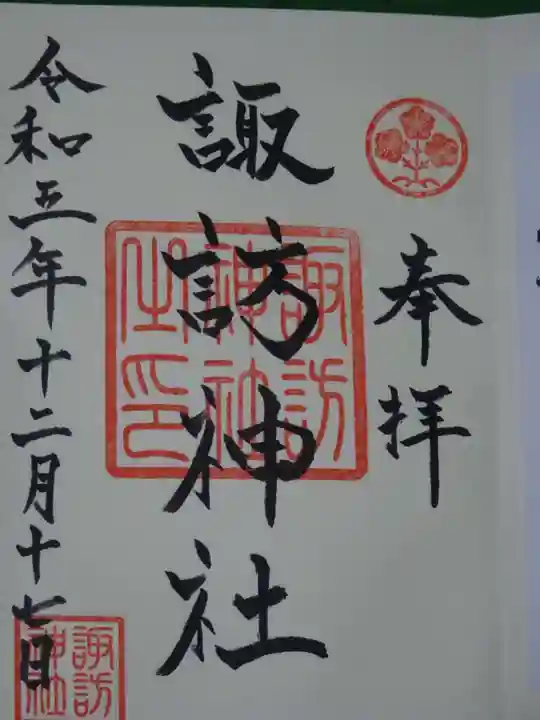 奉拝
諏訪神社
諏訪
神社
之印
令和五年十二月十七日
諏訪
神社